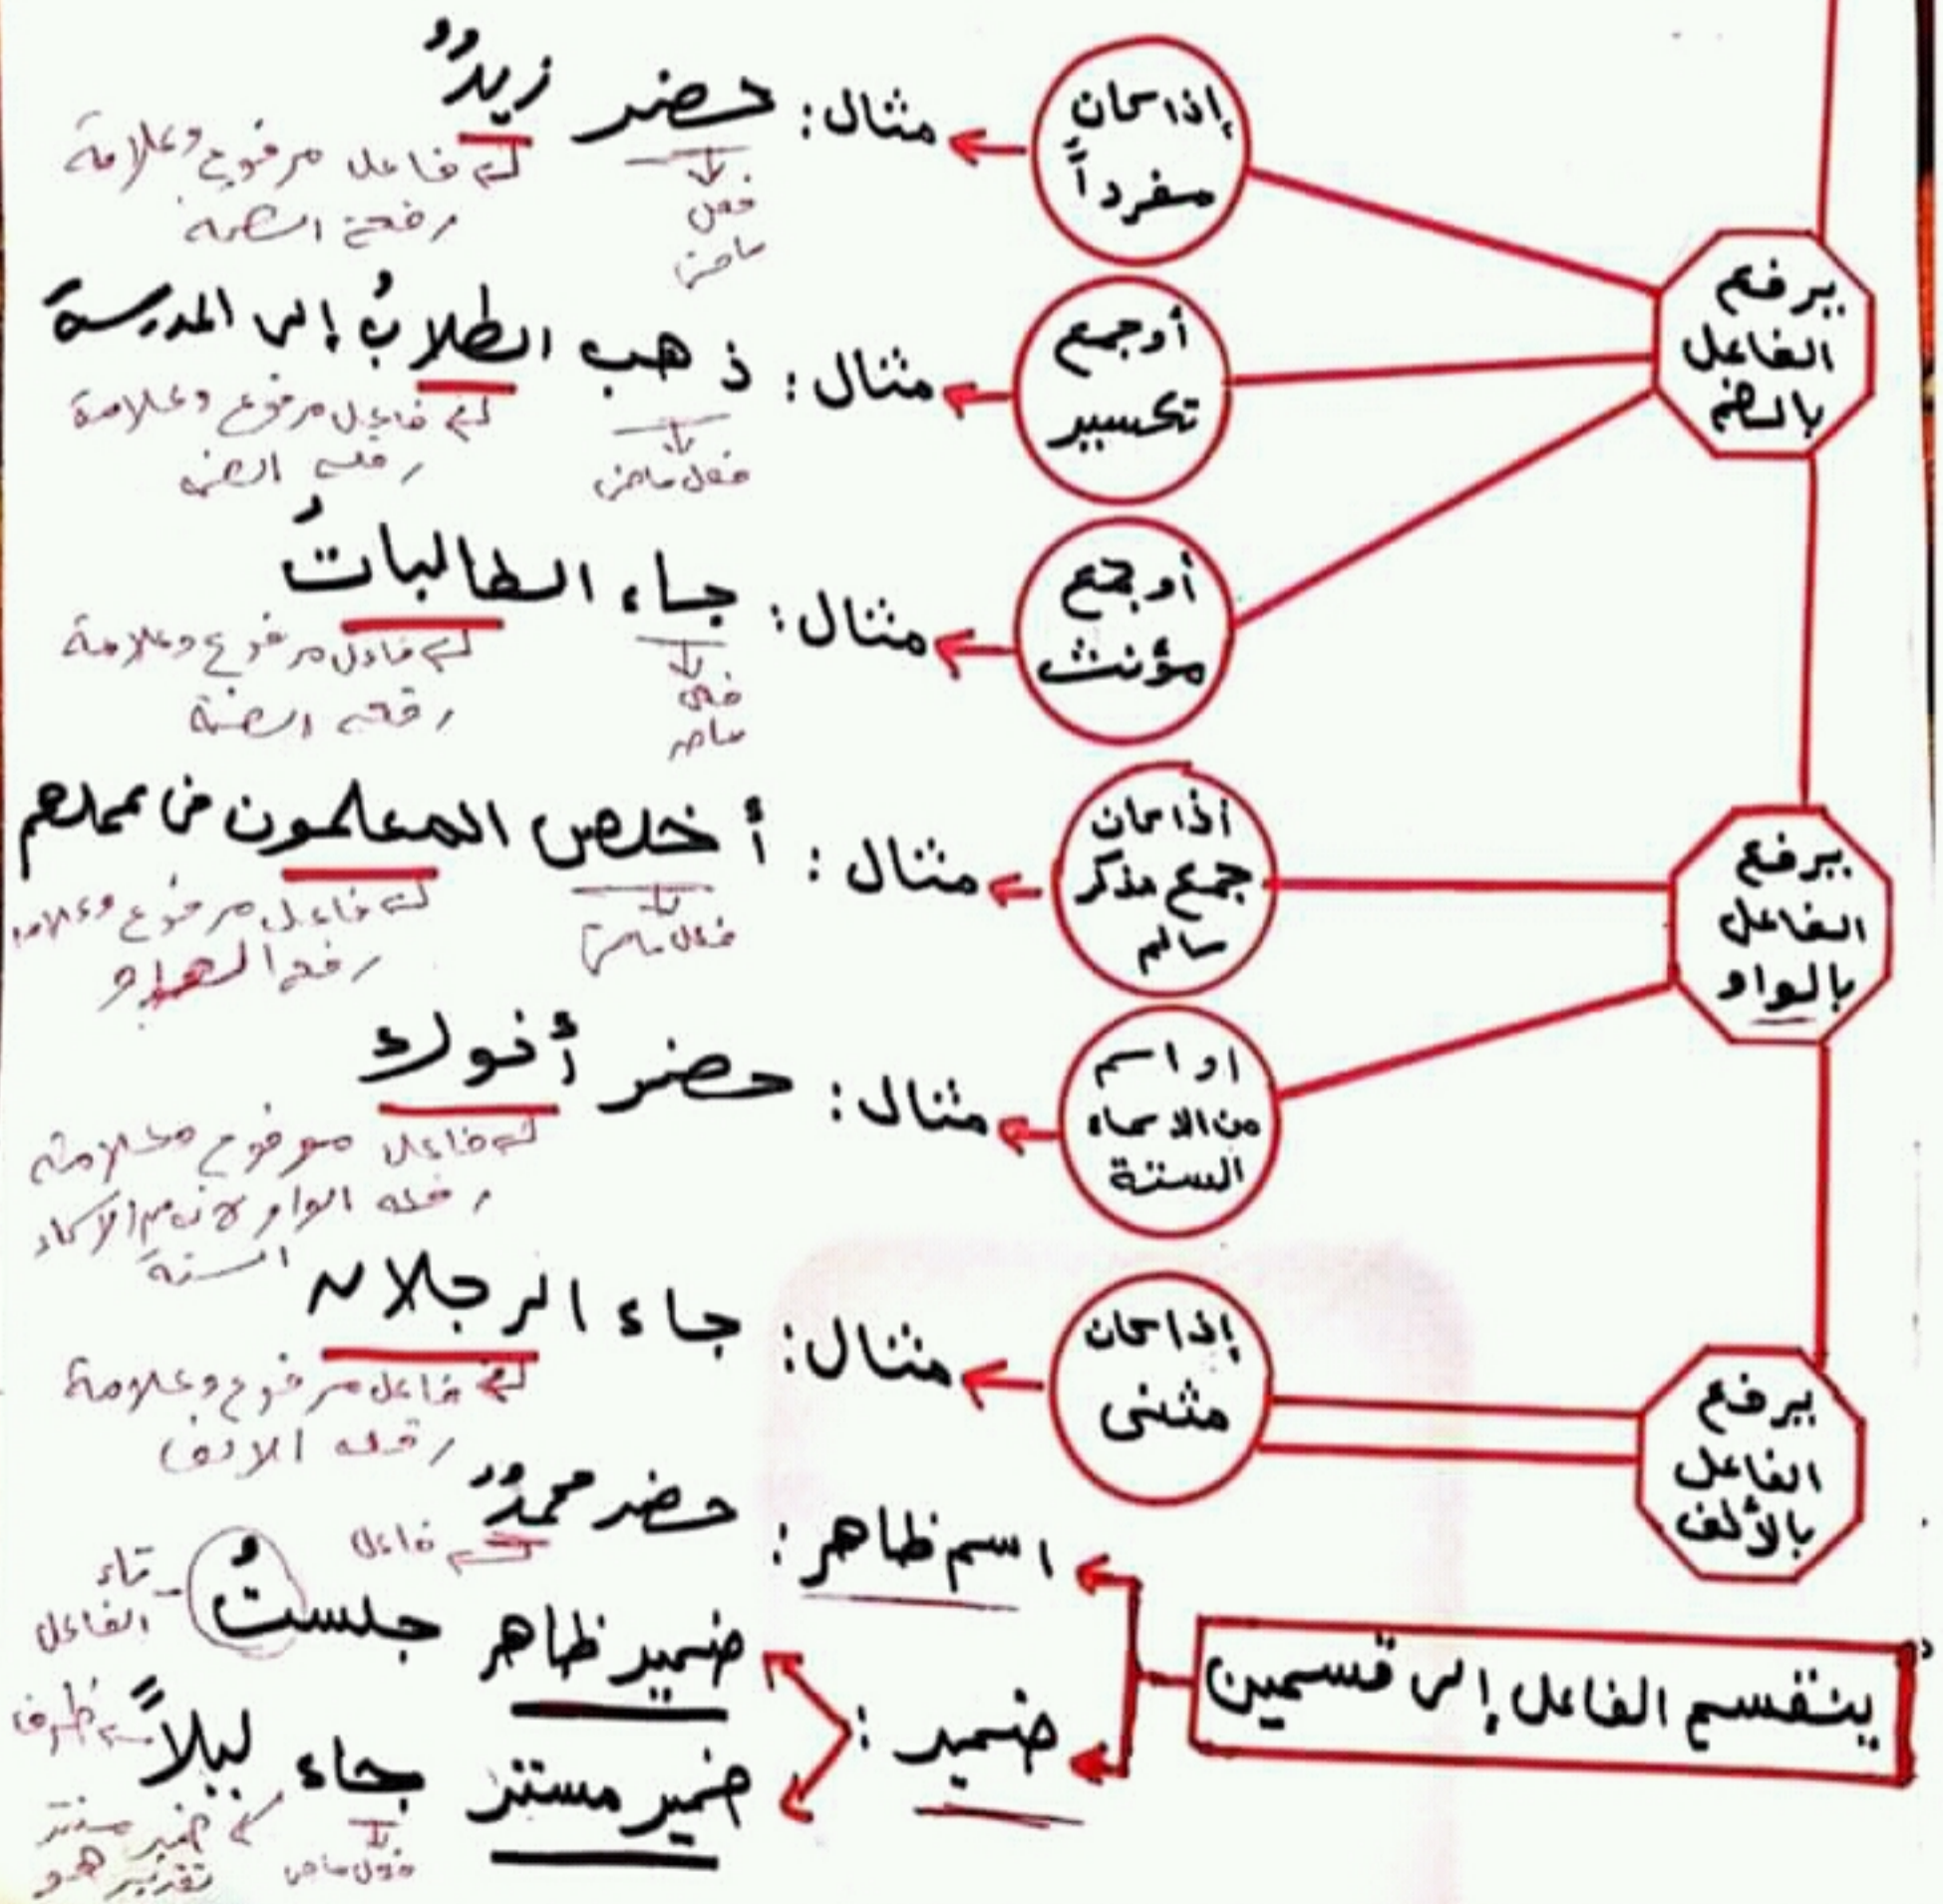 يرفع
الفاعل
بالضم
إذا كان
مفرداً
مثال: حضر زيدٌ
فعل
ماضي
فاعل مرفوع وعلامة
رفعه الضمه
أو جمع
تكسير
مثال: ذهب الطلابُ إلى المدرسة
فعل ماضي
فاعل مرفوع وعلامة
رفعه الضمه
أو جمع
مؤنث
مثال: جاء الطالباتُ
فعل
ماضي
فاعل مرفوع وعلامة
رفعه الضمة
يرفع
الفاعل
بالواو
أذا كان
جمع مذكر
سالم
مثال: أخلص المعلمون في عملهم
فعل ماضي
فاعل مرفوع وعلامة
رفعه الواو
او اسم
من الاسماء
الستة
مثال: حضر أخوك
فاعل مرفوع وعلامة
رفعه الواو لانه من الاسماء
الستة
يرفع
الفاعل
بالألف
إذا كان
مثنى
مثال: جاء الرجلان
فاعل مرفوع وعلامة
رفعه الالف
ينقسم الفاعل إلى قسمين
اسم ظاهر: حضر محمدٌ
فاعل
ضمير:
ضمير ظاهر جلستُ
تاء
الفاعل
ضمير مستتر جاء ليلاً
ظرف
فعل ماضي
ضمير مستتر
تقديره هو